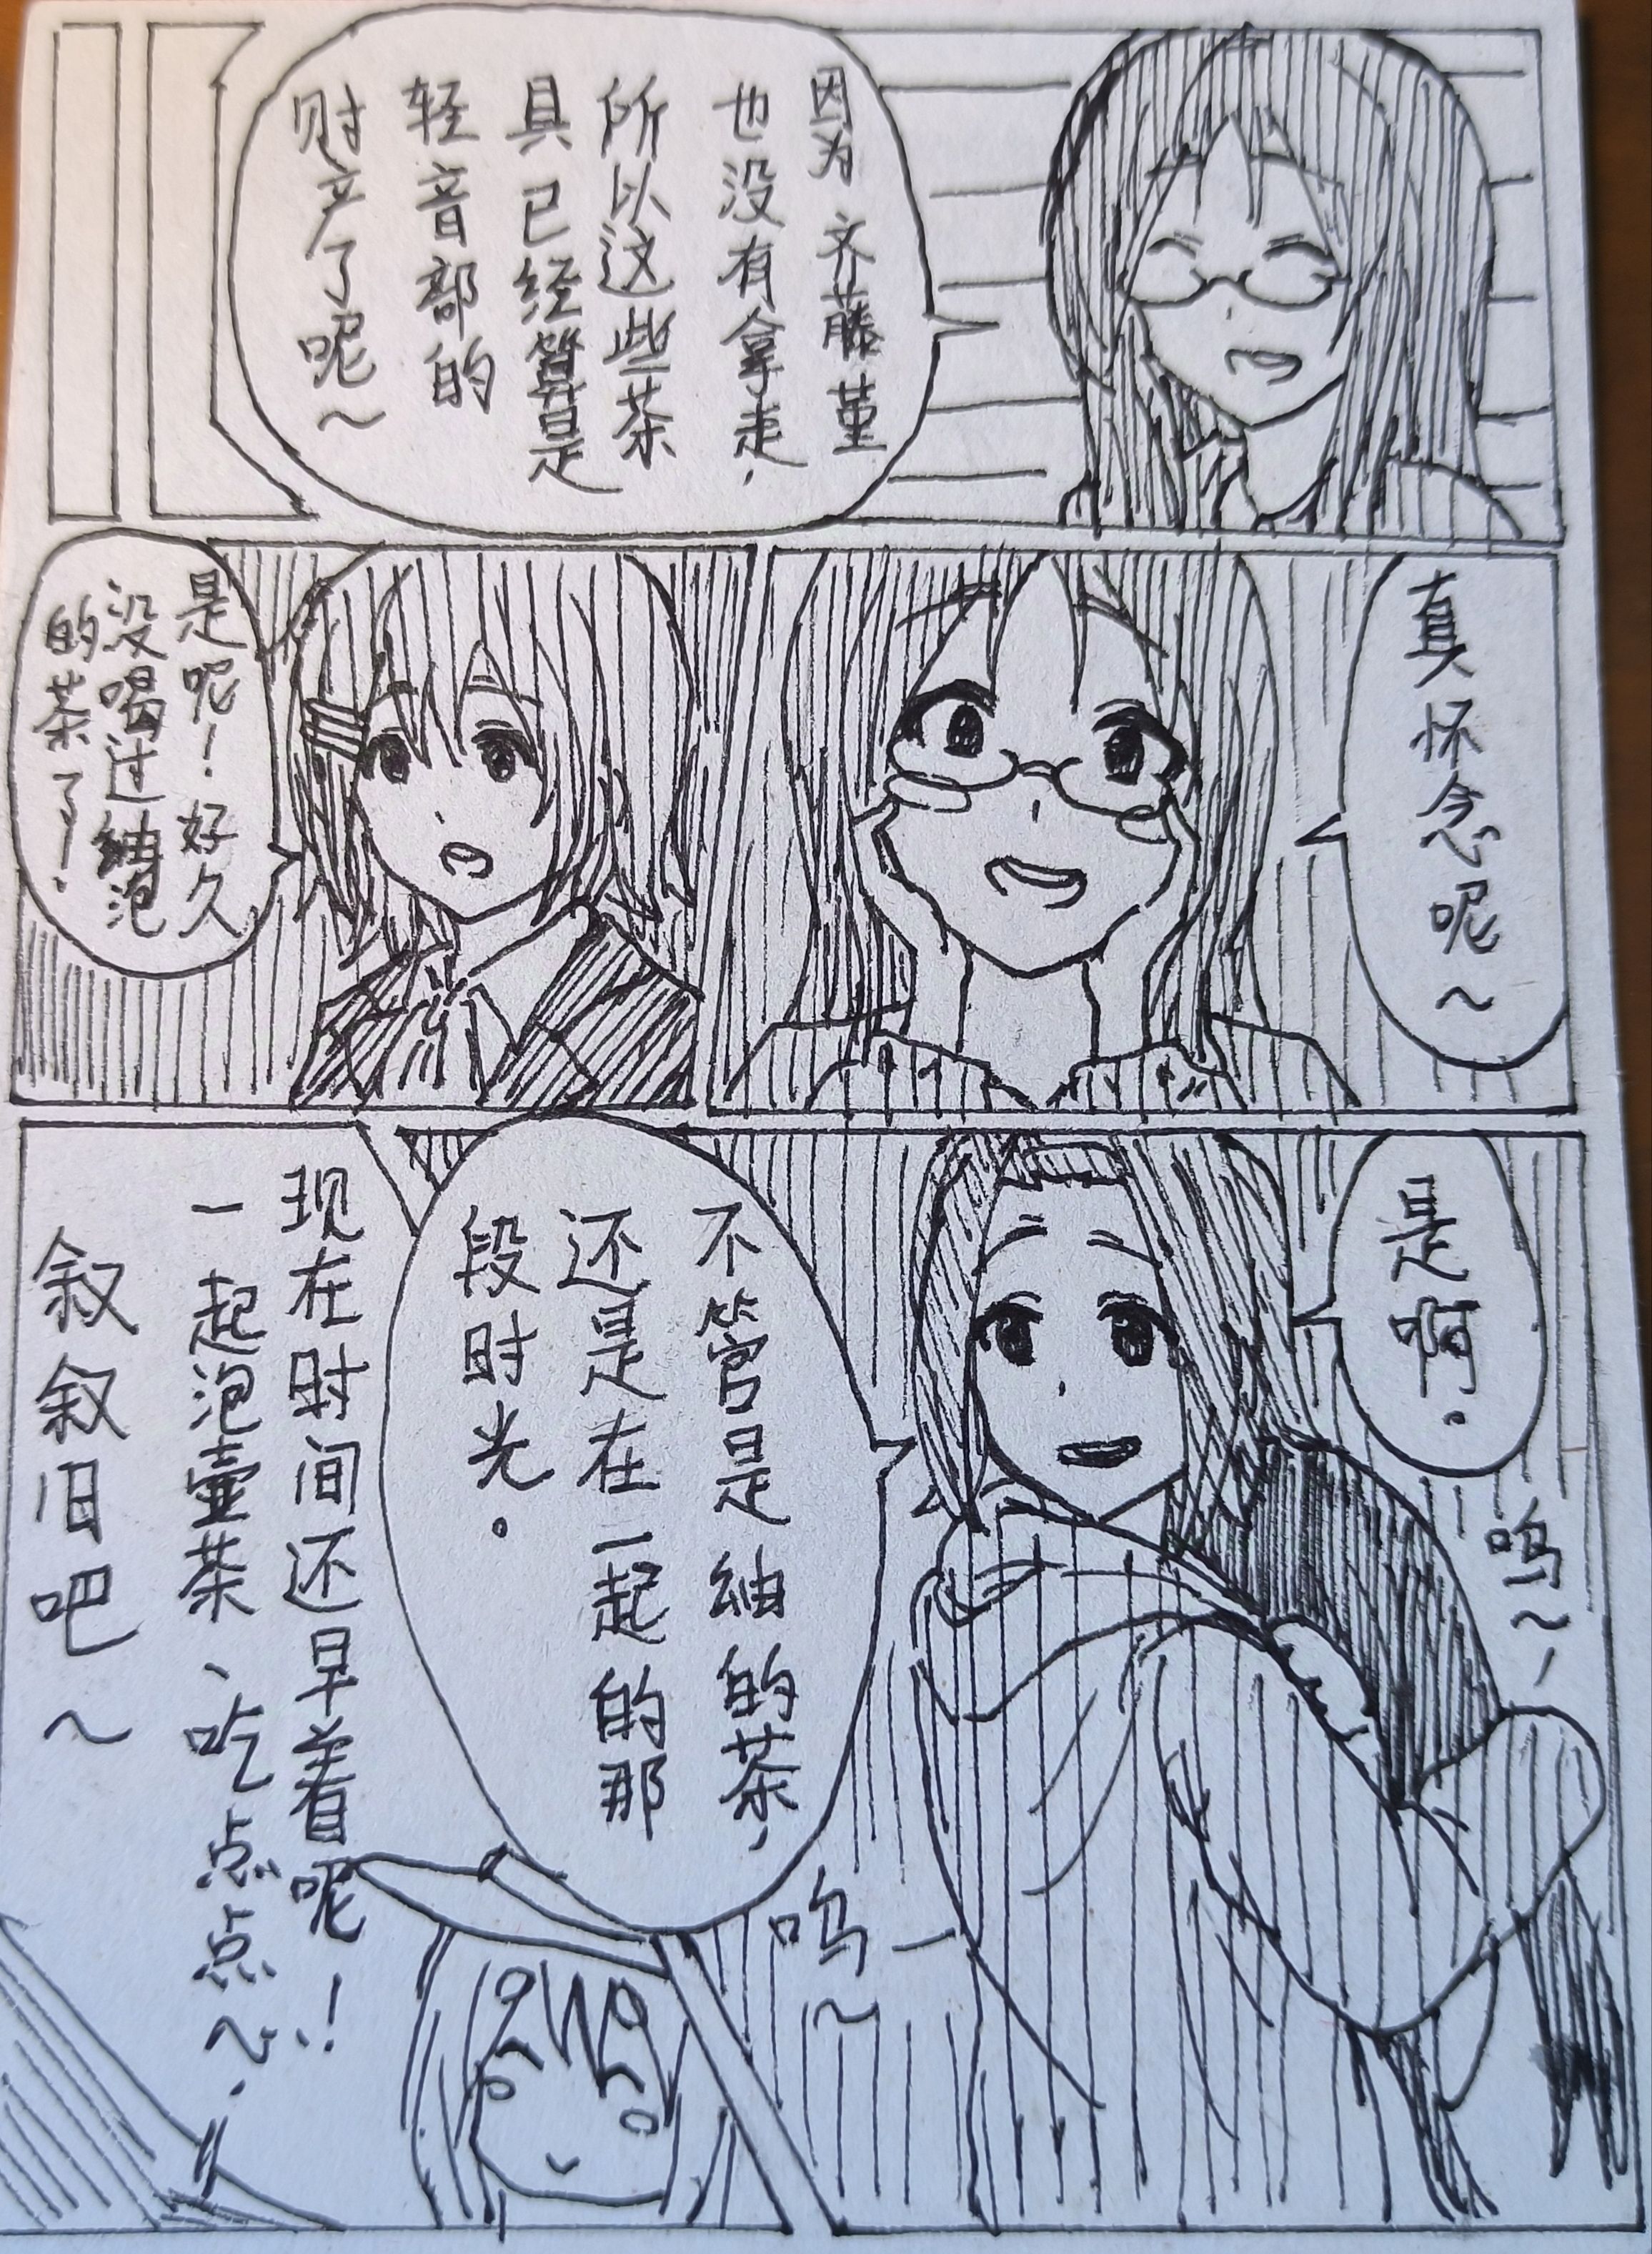 因为齐藤堇
也没有拿走，
所以这些茶
具已经算是
轻音部的
财产了呢～
真怀念呢～
是呢！好久
没喝过紬泡
的茶了！
是啊。
呜～
不管是紬的茶，
还是在一起的那
段时光。
呜～
现在时间还早着呢！
一起泡壶茶、吃点点心．
叙叙旧吧～